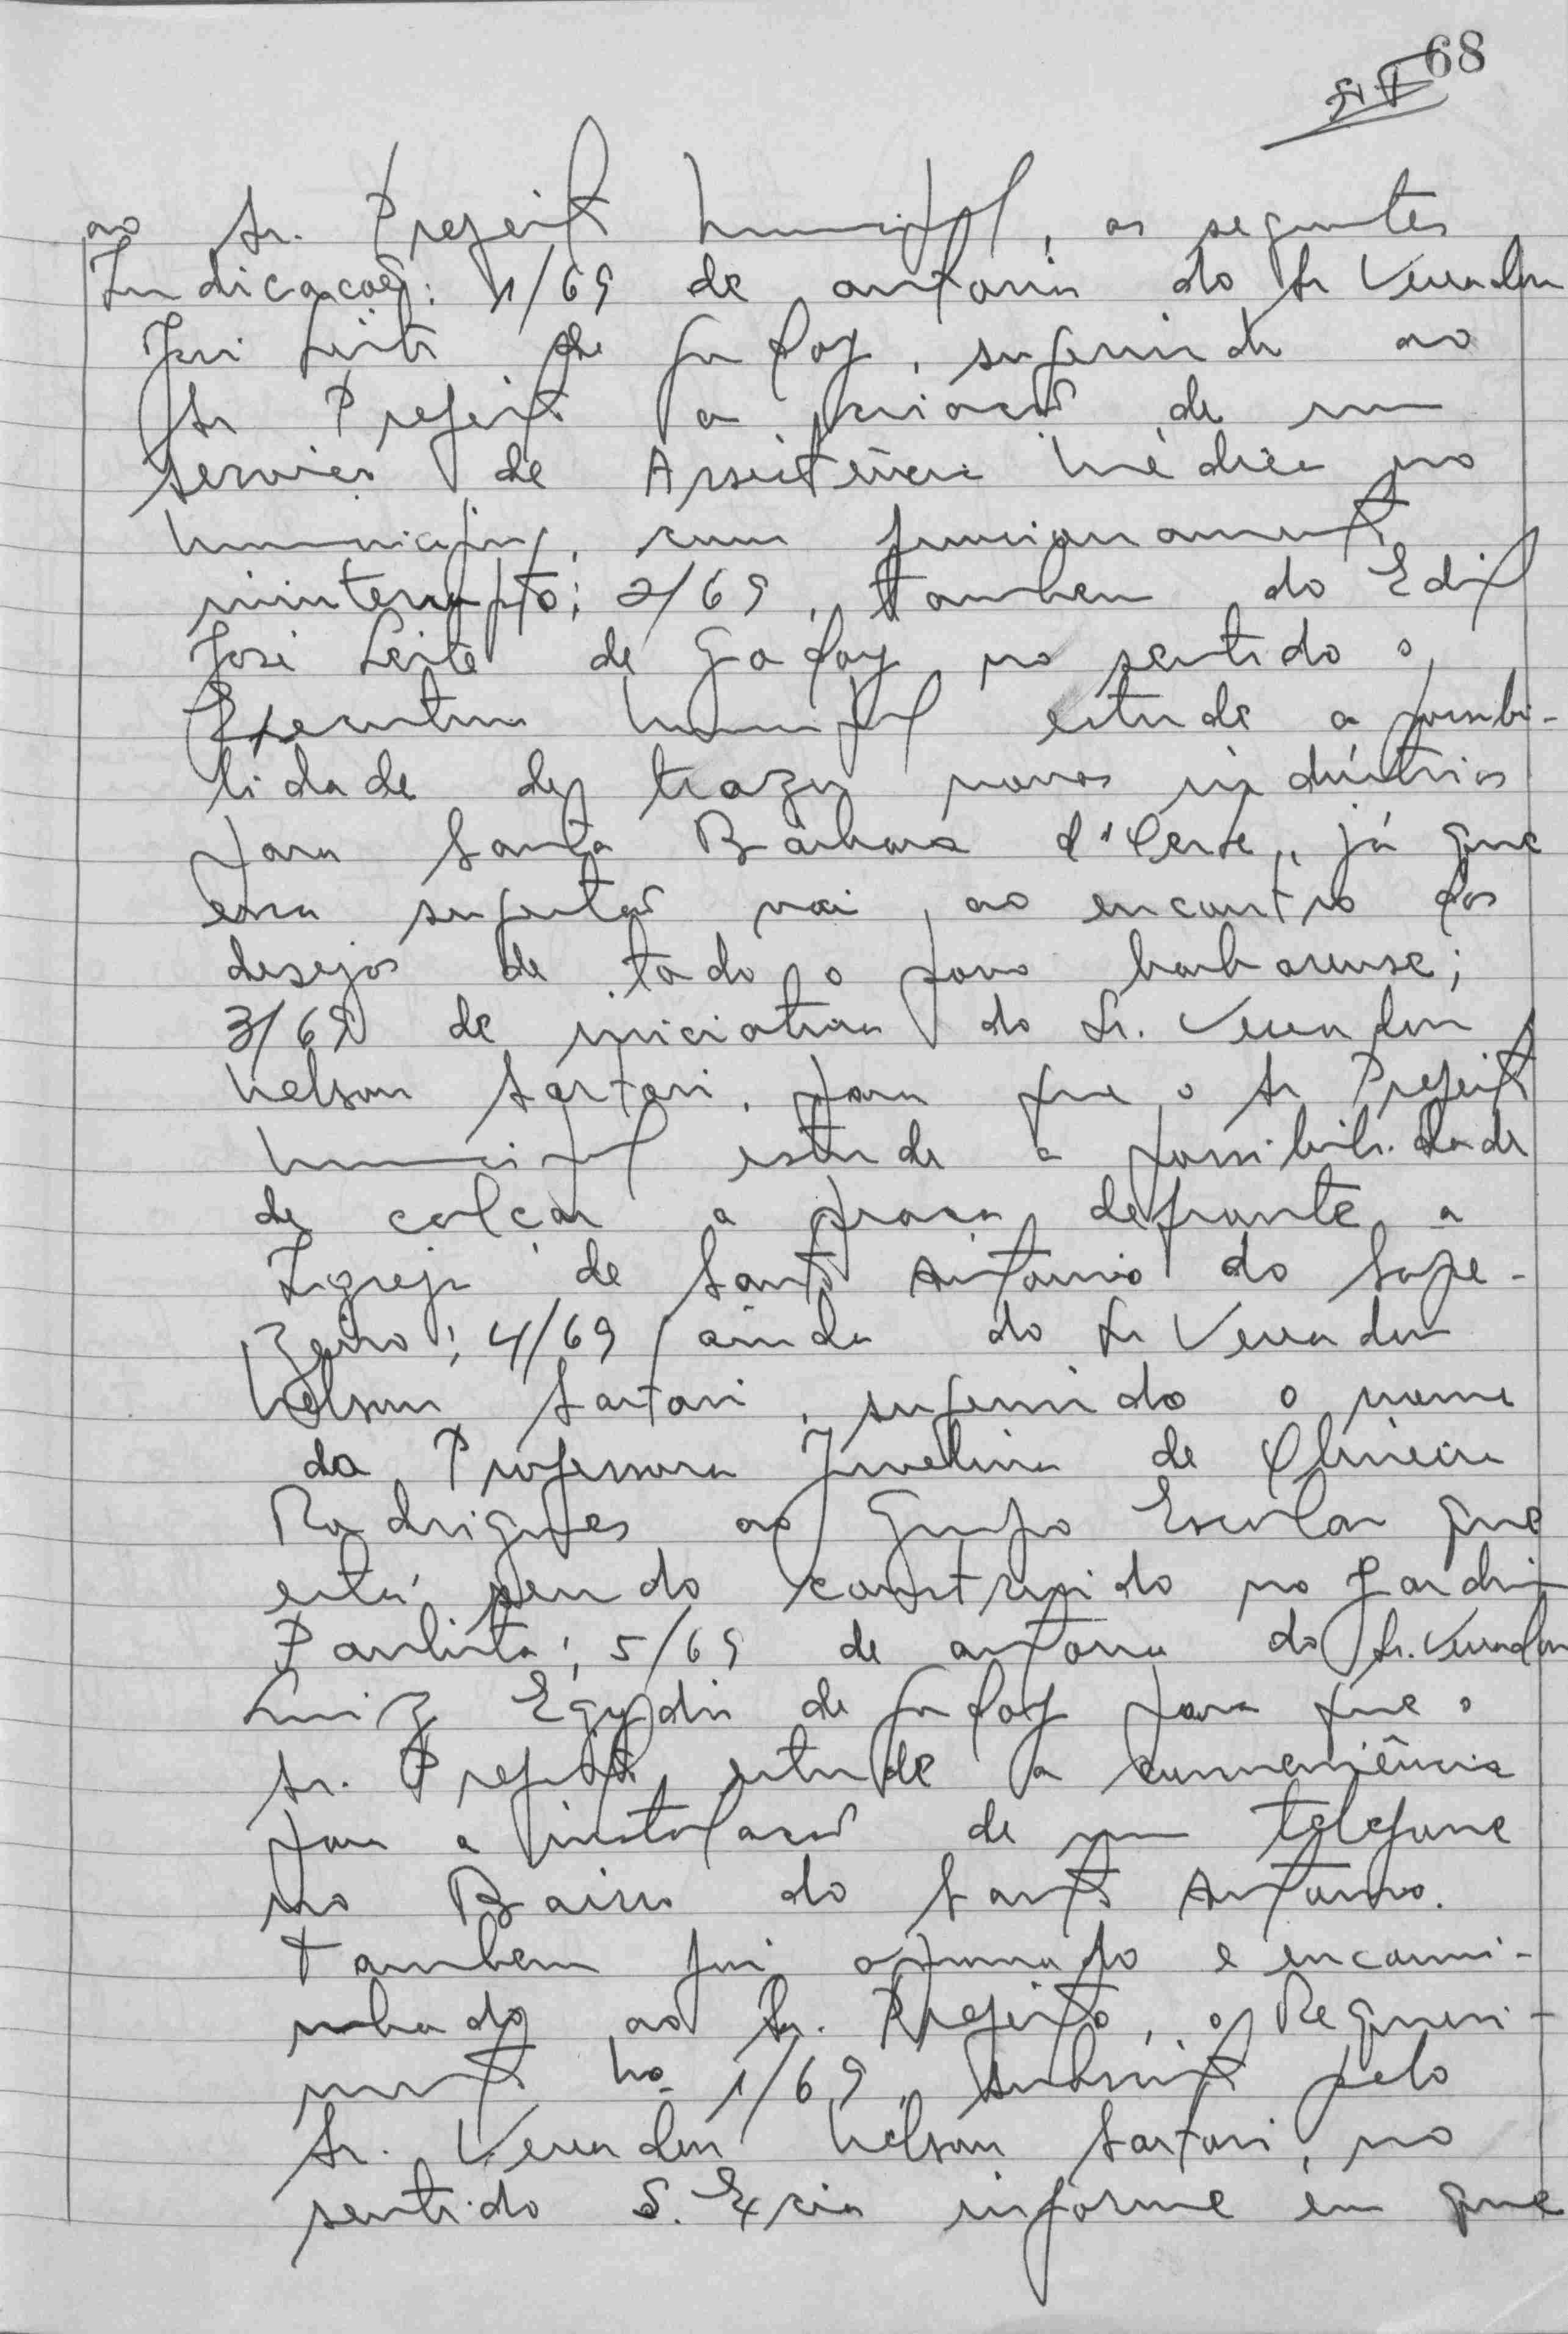 68
ao Sr. Prefeito Municipal, as seguintes
Indicações: 1/69 de autoria do Sr Vereador
José Leite de Godoy, sugerindo ao
Sr Prefeito a criação de um
serviço de Assistência Médica no
Município, com funcionamento
ininterrupto; 2/69, tambem do Edil
José Leite de Godoy no sentido o
Executivo Municipal estude a possibi-
lidade de trazer novas indústrias
para Santa Bárbara d'Oeste, já que
essa sugestão vai ao encontro dos
desejos de todo o povo barbarense;
3/69 de iniciativa do Sr. Vereador
Nelson Sartori, para que o Sr Prefeito
Municipal estude a possibilidade
de calçar a praça defronte a
Igreja de Santo Antonio do Sape-
zeiro; 4/69 ainda do Sr Vereador
Nelson Sartori, sugerindo o nome
da Professora Juvelina de Oliveira
Rodrigues ao Grupo Escolar que
está sendo construido no Jardim
Paulista; 5/69 de autoria do Sr. Vereador
Luiz Egydio de Godoy para que o
Sr. Prefeito estude a conveniência
para a instalação de um telefone
no Bairro do Santo Antonio.
Tambem foi aprovado e encami-
nhado ao Sr. Prefeito, o Requeri-
mento Nº 1/69, subscrito pelo
Sr. Vereador Nelson Sartori, no
sentido S. Excia informe em que